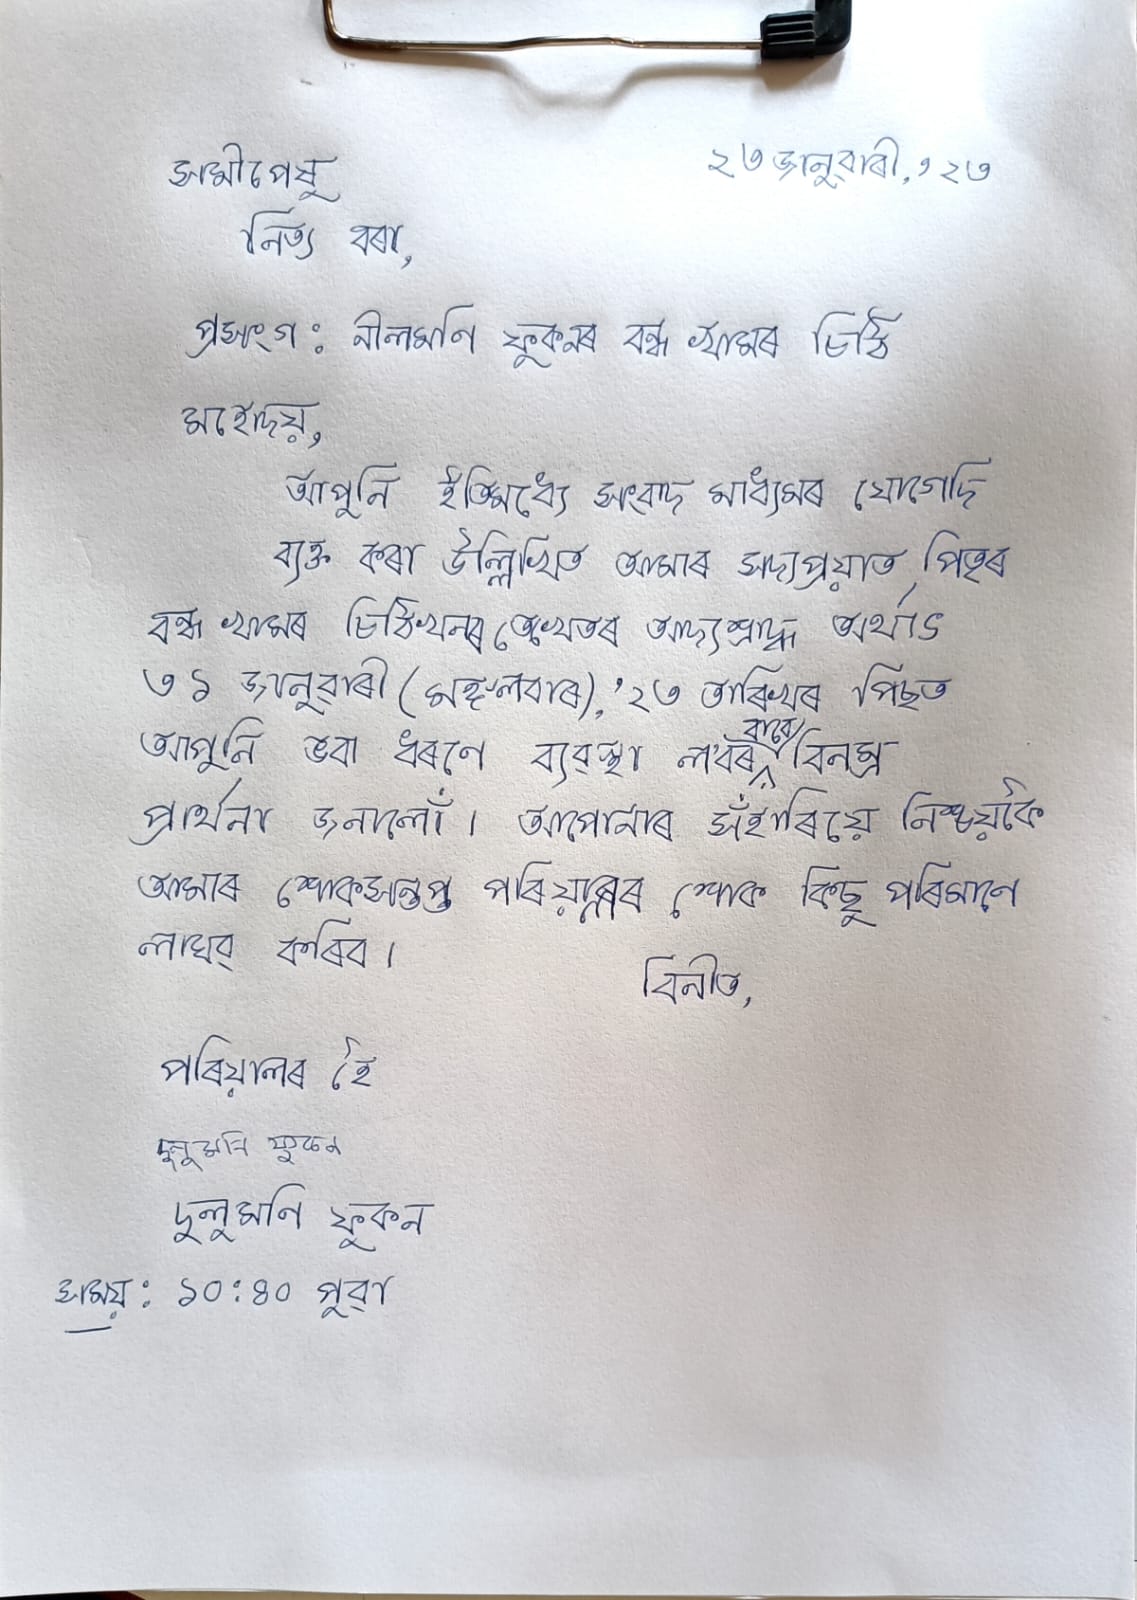 সমীপেষু
২৩ জানুৱাৰী, '২৩
নিত্য বৰা,
প্ৰসংগ : নীলমণি ফুকনৰ বন্ধ খামৰ চিঠি
মহোদয়,
আপুনি ইতিমধ্যে সংবাদ মাধ্যমৰ যোগেদি
ব্যক্ত কৰা উল্লিখিত আমাৰ সদ্যপ্ৰয়াত পিতৃৰ
বন্ধ খামৰ চিঠিখনৰ তেখেতৰ আদ্যশ্ৰাদ্ধ অৰ্থাৎ
৩১ জানুৱাৰী (মঙ্গলবাৰ), '২৩ তাৰিখৰ পিছত
আপুনি ভবা ধৰণে ব্যৱস্থা ল'বৰ বাবে বিনম্ৰ
প্ৰাৰ্থনা জনালোঁ। আপোনাৰ সঁহাৰিয়ে নিশ্চয়কৈ
আমাৰ শোকসন্তপ্ত পৰিয়ালৰ শোক কিছু পৰিমাণে
লাঘৱ কৰিব।
বিনীত,
পৰিয়ালৰ হৈ
দুলুমণি ফুকন
দুলুমণি ফুকন
সময় : ১০:৪০ পুৱা